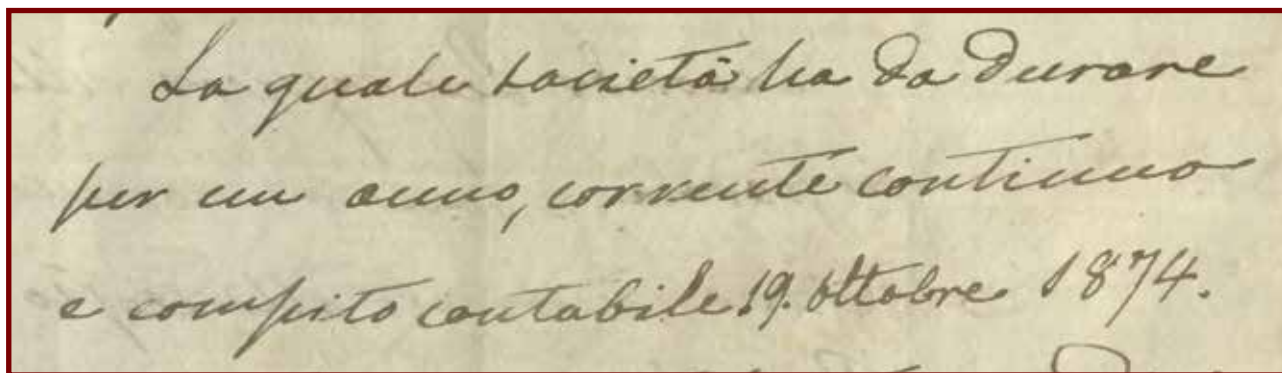 La quale società ha da durare
per un anno, corrente continuo
e compito contabile 19. Ottobre 1874.